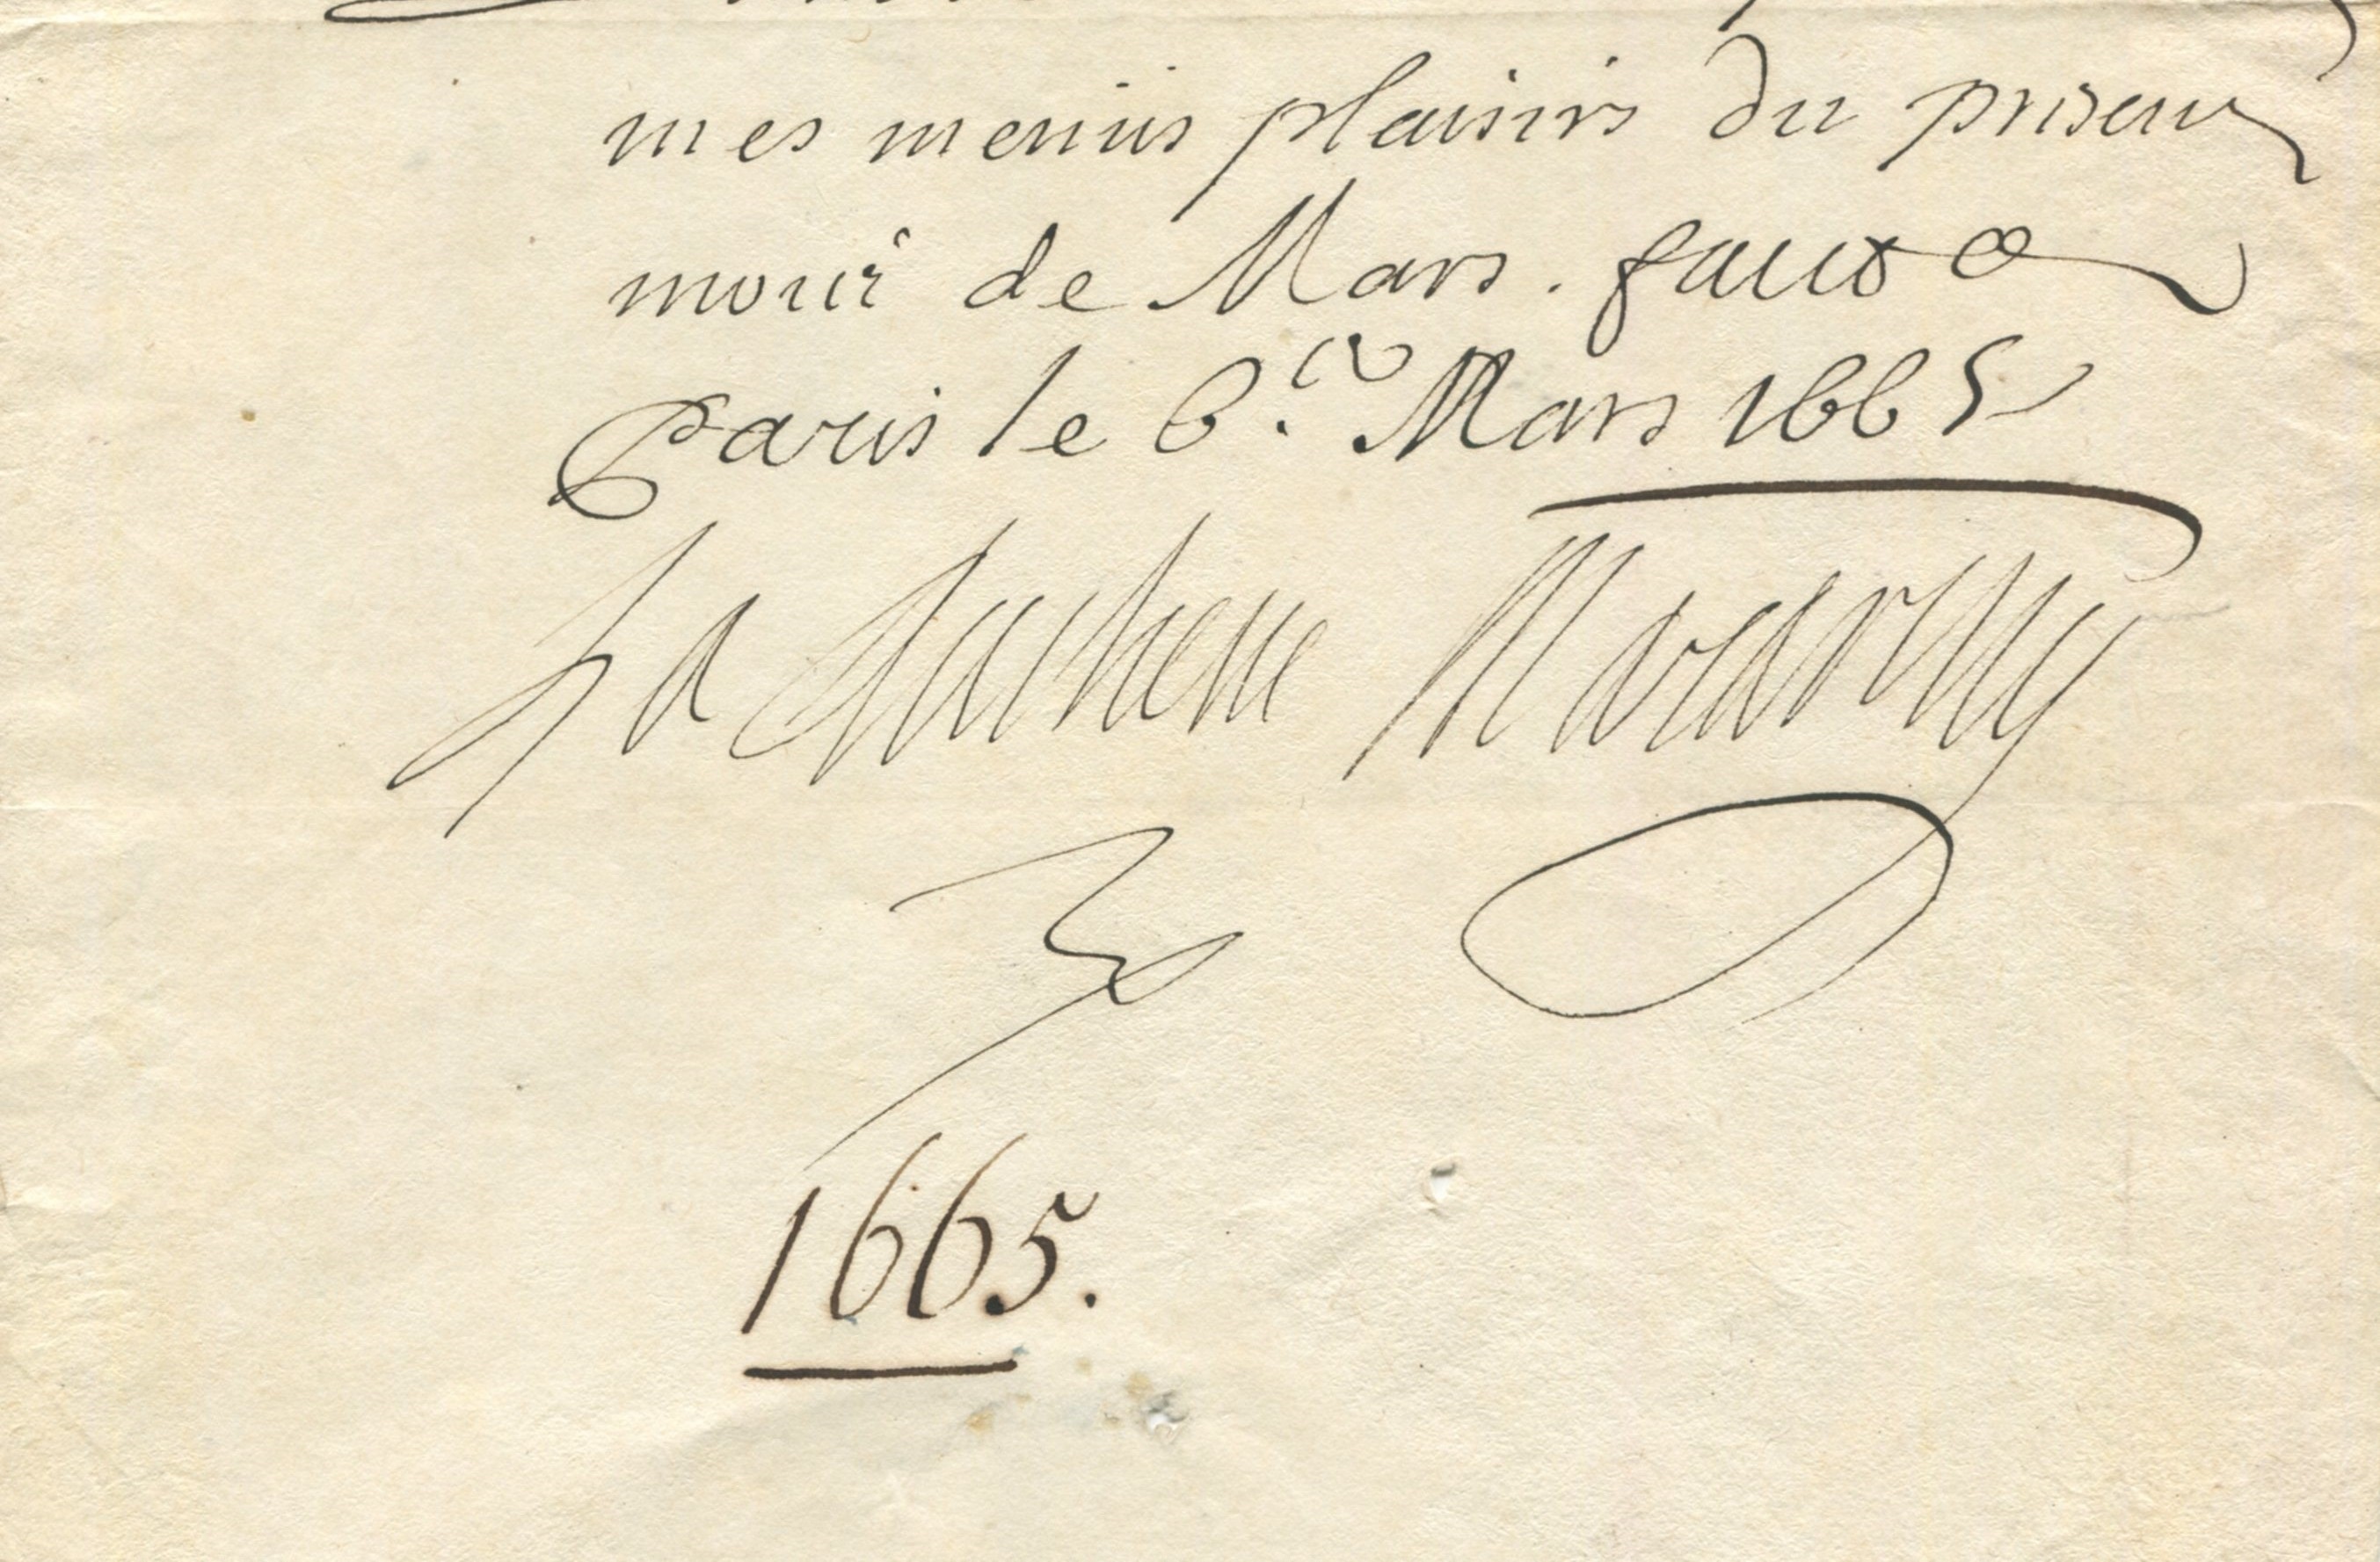 mes menus plaisirs du present
mois de Mars. faict a
Paris le 6.e Mars 1665
La duchesse Mazariny
1665.